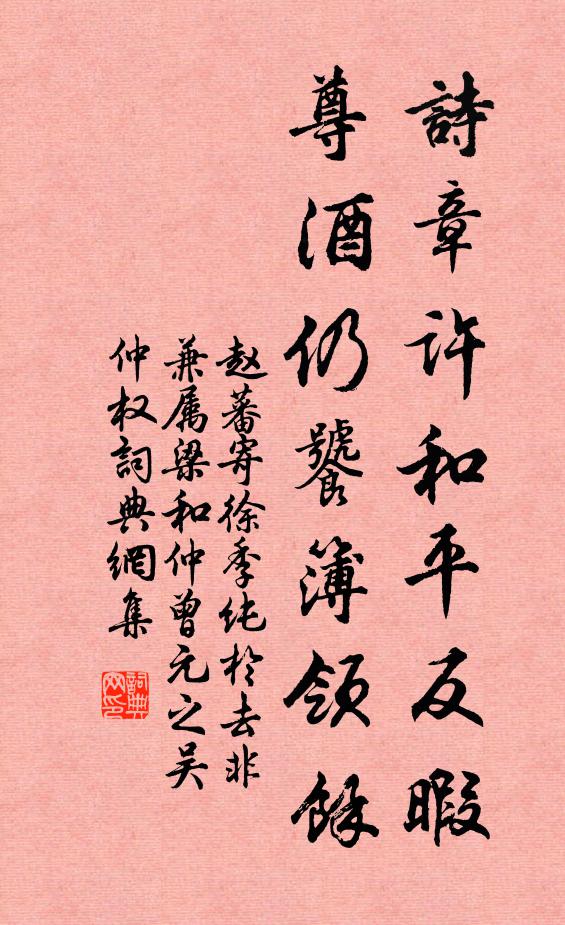 詩章許和平反暇
尊酒仍饕簿領餘
赵蕃寄徐季纯於去非
兼属梁和仲曾元之吴
仲权詞典網集
詞典网印